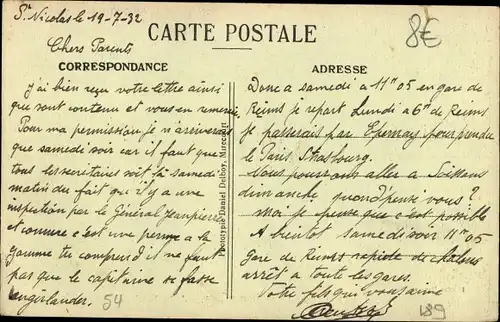 St Nicolas le 19-7-32
8€
CARTE POSTALE
Chers Parents
CORRESPONDANCE
J'ai bien reçu votre lettre ainsi
que sont contenu et vous en remercie
Pour ma permission je n'arriverais
que samedi soir car il faut que
tous les secretaires soit là samedi
matin du fait qui il y a une
inspection par le Général
et comme c'est une perme a la
gomme tu comprend il ne faut
pas que le capitaine se fasse
engerlander.
54
Phototypie Daniel Delboy, Mirecourt
ADRESSE
Donc a samedi a 11h05 en gare de
Reims je repart Lundi a 6h de Reims
je passerais par Epernay pour prendre
le Paris Strasbourg.
Nous pourrons aller a Soissons
dimanche quand pense vous?
Moi je pense que c'est possible
A bientôt samedi soir 11h05
gare de Reims rapide de Chalons
arrêt a toute les gares.
Votre fils qui vous aime
189